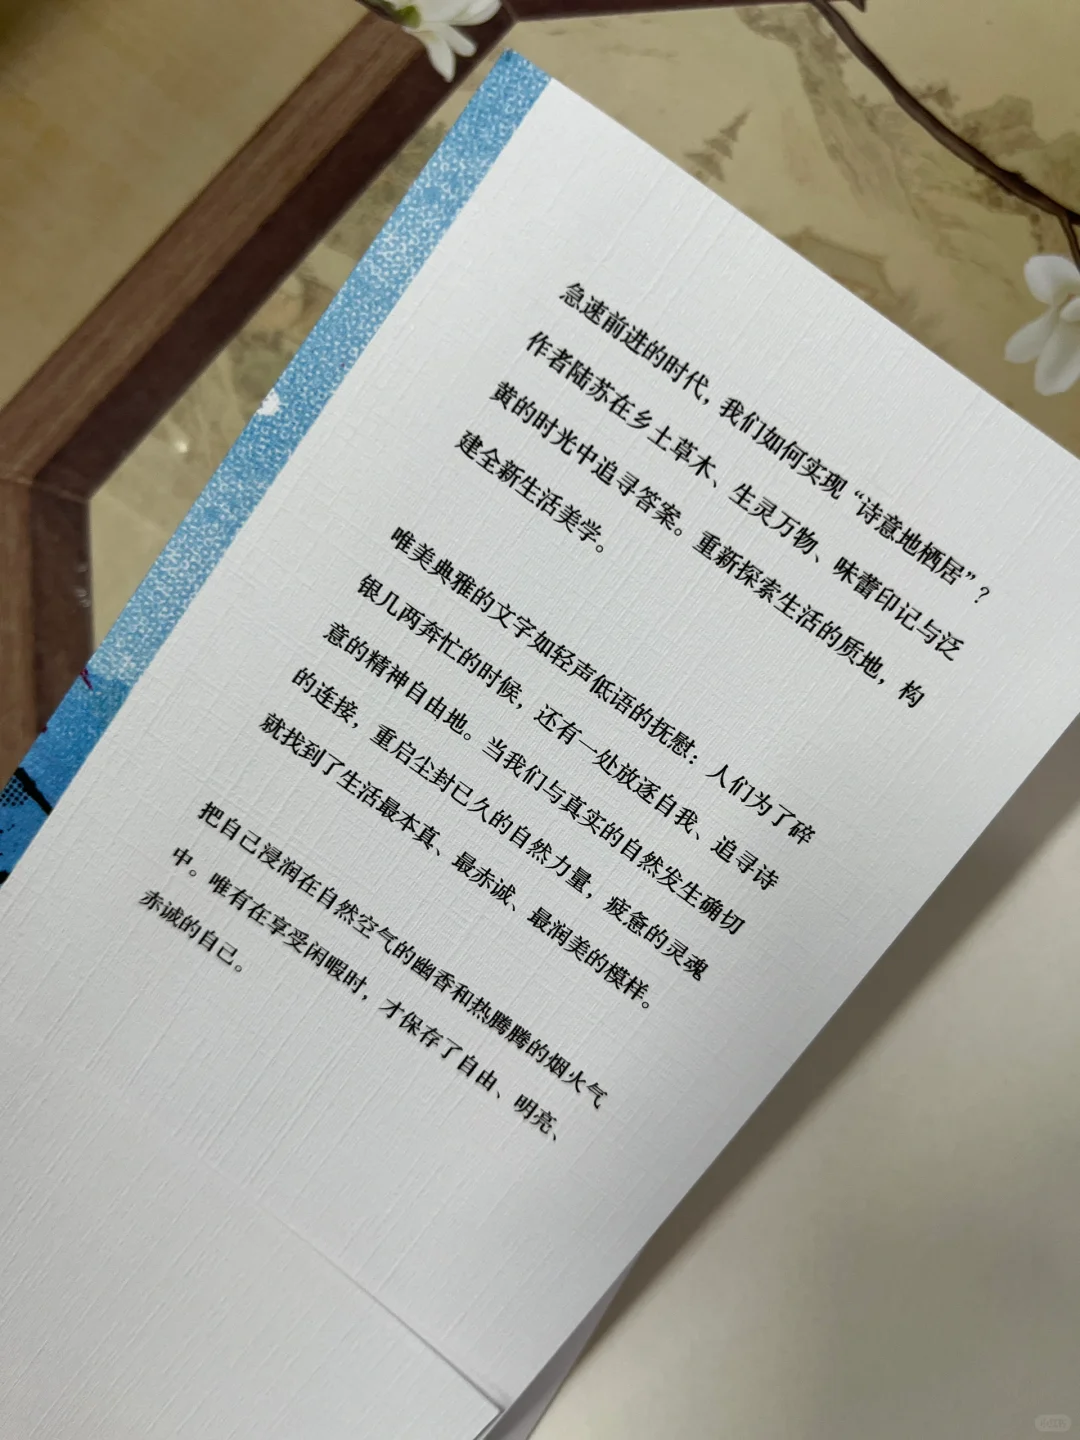 急速前进的时代，我们如何实现“诗意地栖居”？
作者陆苏在乡土草木、生灵万物、味蕾印记与泛
黄的时光中追寻答案。重新探索生活的质地，构
建全新生活美学。
唯美典雅的文字如轻声低语的抚慰：人们为了碎
银几两奔忙的时候，还有一处放逐自我、追寻诗
意的精神自由地。当我们与真实的自然发生确切
的连接，重启尘封已久的自然力量，疲惫的灵魂
就找到了生活最本真、最赤诚、最润美的模样。
把自己浸润在自然空气的幽香和热腾腾的烟火气
中。唯有在享受闲暇时，才保存了自由、明亮、
赤诚的自己。